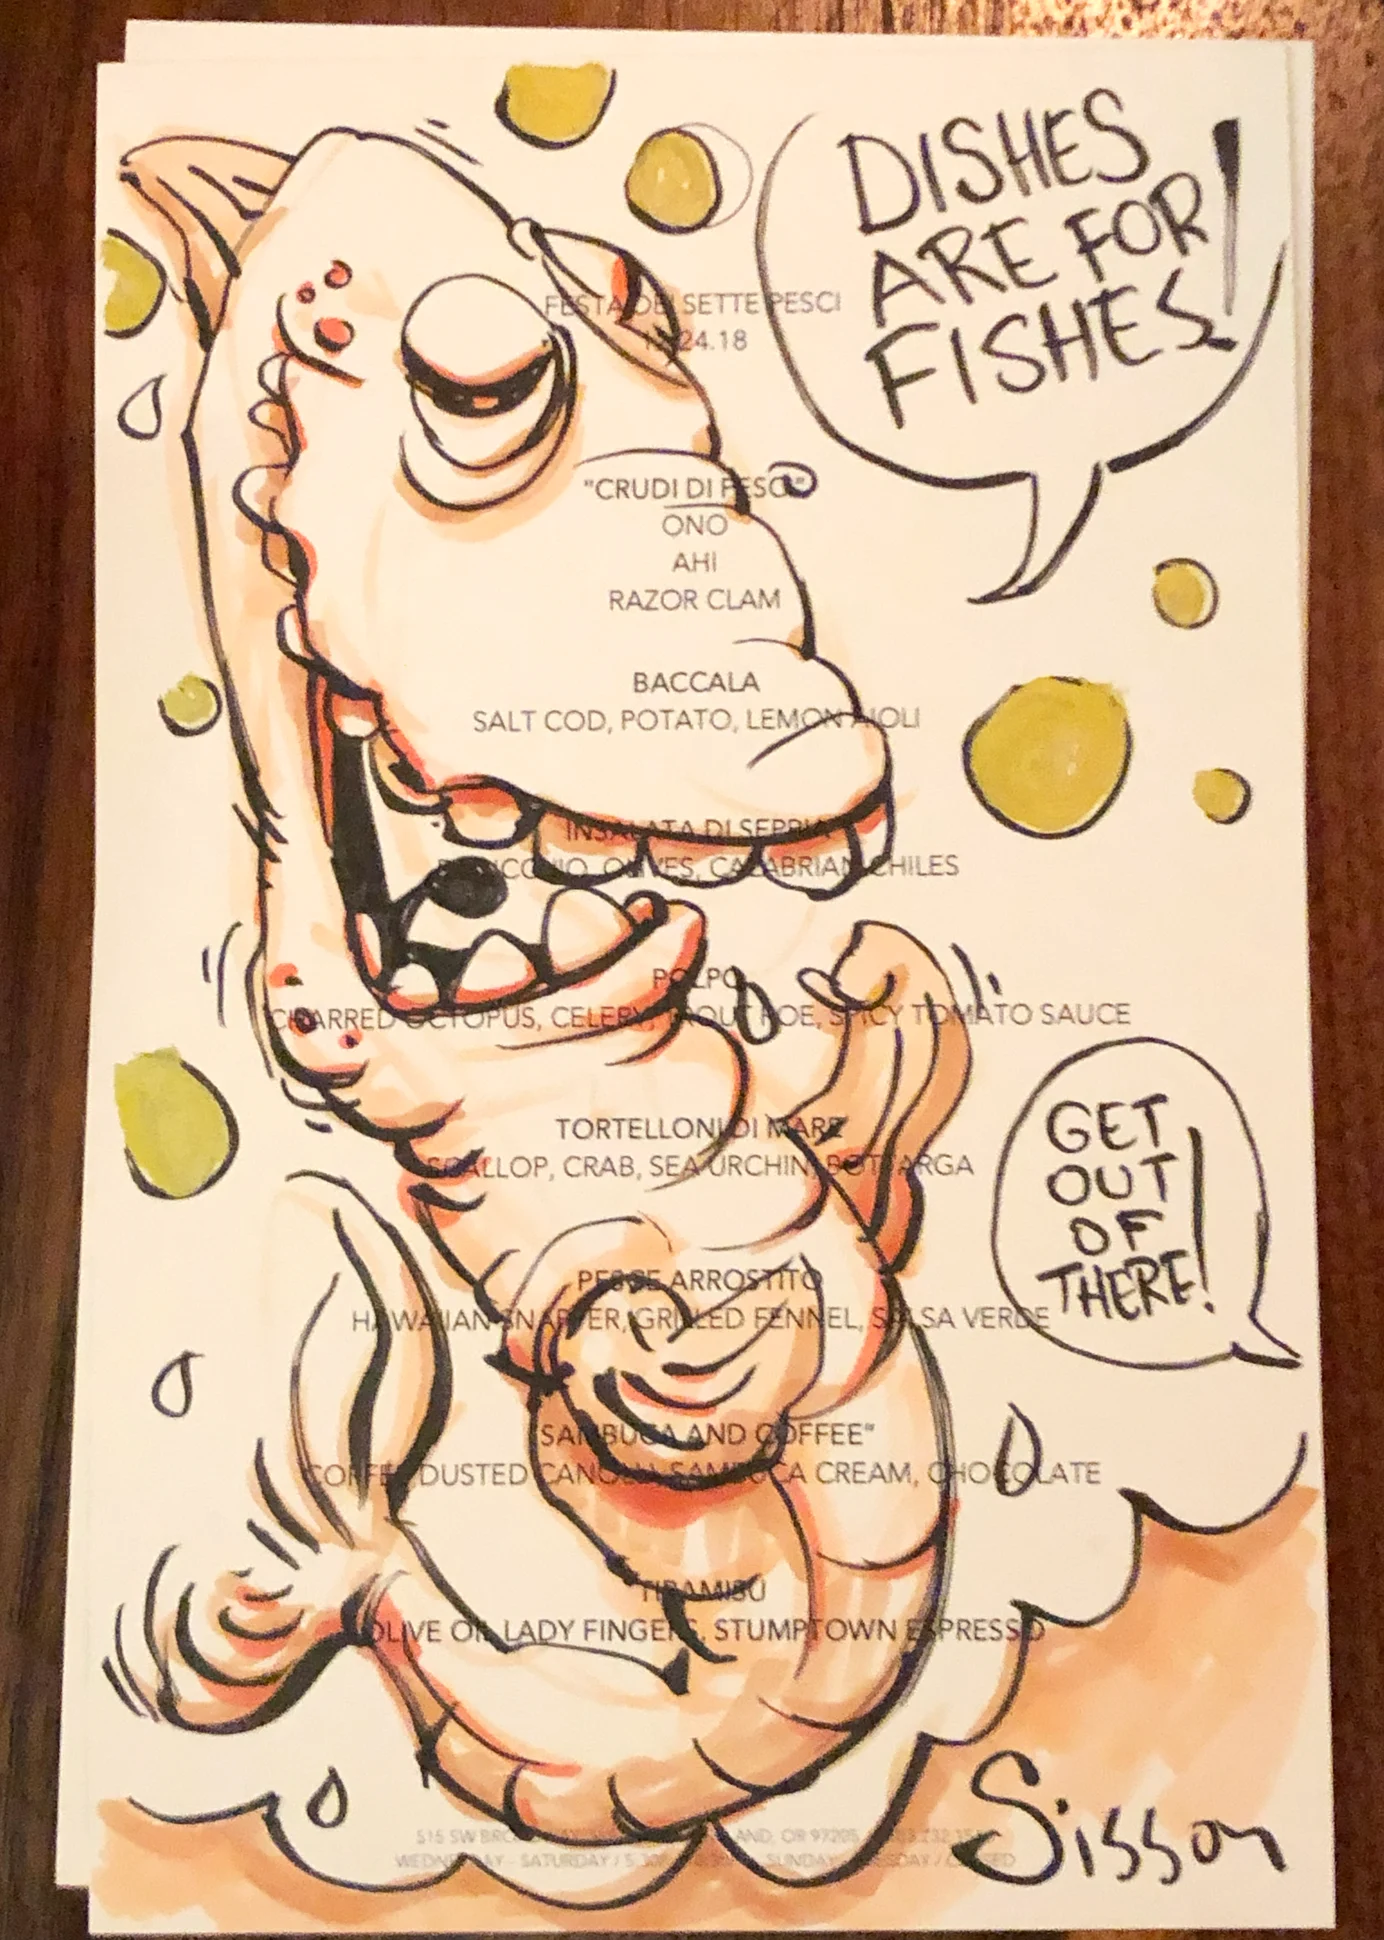 DISHES
ARE FOR
FISHES!
FESTA DEI SETTE PESCI
12.24.18
"CRUDI DI PESCI"
ONO
AHI
RAZOR CLAM
BACCALA
SALT COD, POTATO, LEMON AIOLI
INSALATA DI SEPPIA
OLIVES, CALABRIAN CHILES
POLPO
CHARRED OCTOPUS, CELERY, TROUT ROE, SPICY TOMATO SAUCE
GET
OUT
OF
THERE!
TORTELLONI DI MARE
SCALLOP, CRAB, SEA URCHIN, BOTTARGA
PESCE ARROSTITO
HAWAIIAN SNAPPER, GRILLED FENNEL, SALSA VERDE
"SAMBUCA AND COFFEE"
COFFEE DUSTED CANOLLI, SAMBUCA CREAM, CHOCOLATE
TIRAMISU
OLIVE OIL LADY FINGERS, STUMPTOWN ESPRESSO
Sisson
515 SW BROADWAY OR 97205
WEDNESDAY - SATURDAY / SUNDAY - TUESDAY / CLOSED